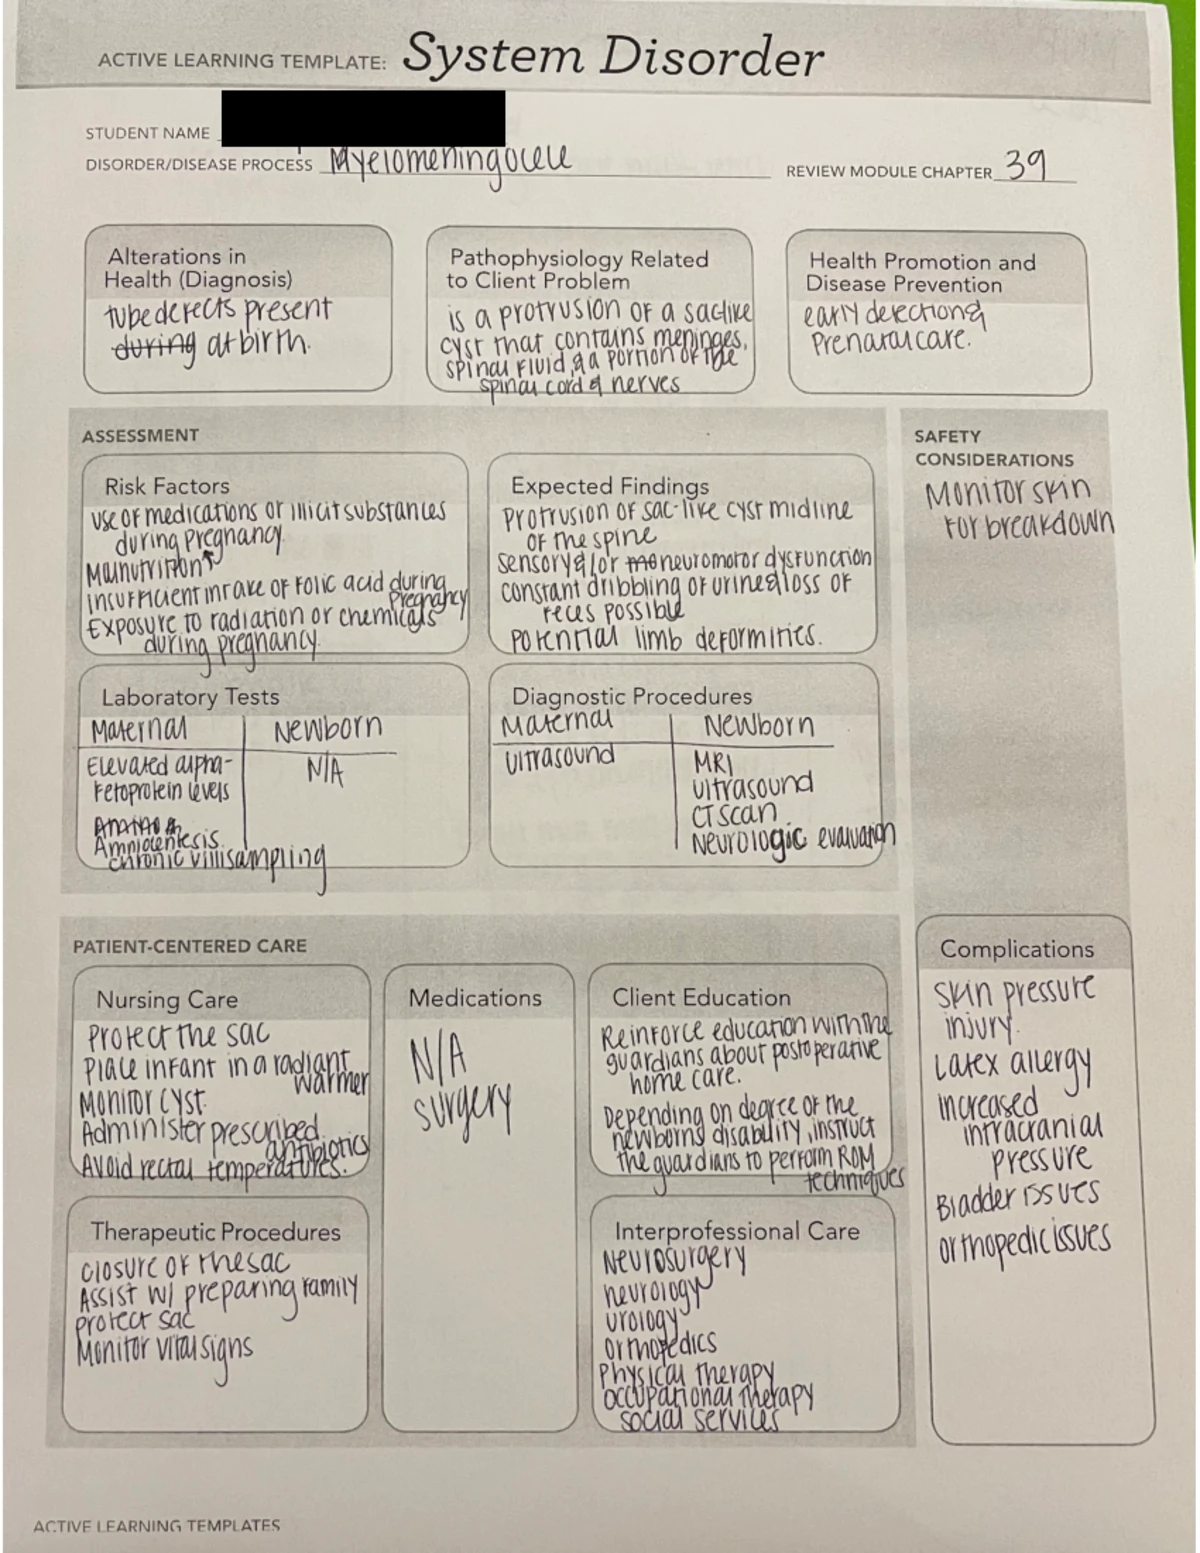 ACTIVE LEARNING TEMPLATE: System Disorder
STUDENT NAME
DISORDER/DISEASE PROCESS Myelomeningocele
REVIEW MODULE CHAPTER 39
Alterations in
Health (Diagnosis)
tube defects present
during at birth.
Pathophysiology Related
to Client Problem
is a protrusion of a saclike
cyst that contains meninges,
spinal fluid, & a portion of the
spinal cord & nerves
Health Promotion and
Disease Prevention
early detection &
prenatal care.
ASSESSMENT
Risk Factors
use of medications or illicit substances
during pregnancy
Malnutrition↑
insufficient intake of folic acid during
pregnancy
Exposure to radiation or chemicals
during pregnancy.
Expected Findings
Protrusion of sac-like cyst midline
of the spine
sensory &/or neuromotor dysfunction
constant dribbling of urine & loss of
feces possible
potential limb deformities.
SAFETY
CONSIDERATIONS
Monitor skin
for breakdown
Laboratory Tests
Maternal
Newborn
Elevated alpha-
fetoprotein levels
N/A
Amniocentesis
chronic villi sampling
Diagnostic Procedures
Maternal
Newborn
ultrasound
MRI
ultrasound
CT scan
Neurologic evaluation
PATIENT-CENTERED CARE
Nursing Care
Protect the sac
Place infant in a radiant
warmer
Monitor cyst.
Administer prescribed
antibiotics
Avoid rectal temperatures.
Medications
N/A
surgery
Client Education
Reinforce education with the
guardians about postoperative
home care.
Depending on degree of the
newborns disability, instruct
the guardians to perform ROM
techniques
Complications
skin pressure
injury.
Latex allergy
increased
intracranial
pressure
Bladder issues
orthopedic issues
Therapeutic Procedures
closure of the sac
Assist w/ preparing family
protect sac
Monitor vital signs
Interprofessional Care
Neurosurgery
neurology
urology
orthopedics
Physical therapy
occupational therapy
social services
ACTIVE LEARNING TEMPLATES